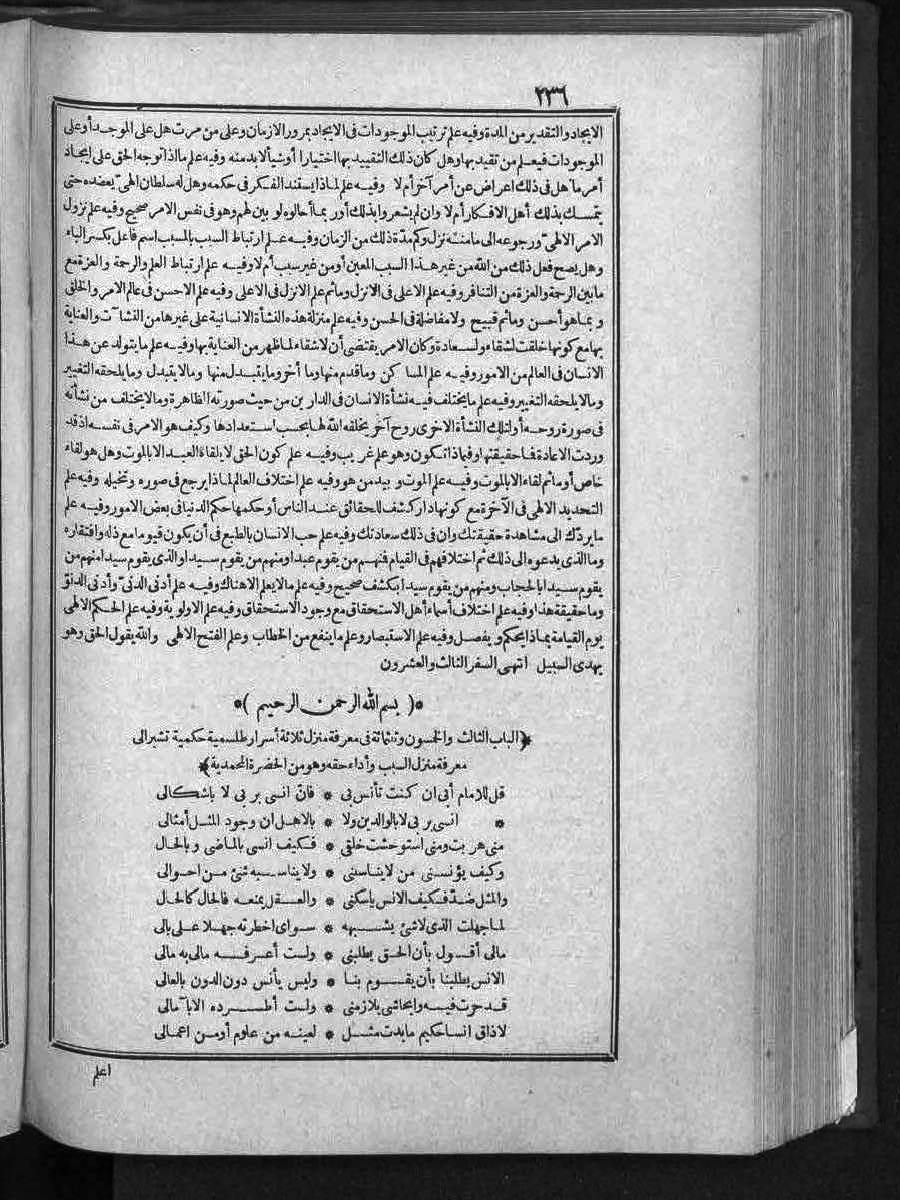 ٢٣٦
الايجاد والتقدير من المدة وفيه علم ترتيب الموجودات فى الايجاد بمرور الازمان وعلى من مرت هل على الموجد أو على
الموجودات فيعلم من تقيد بها وهل كان ذلك التقييد بها اختيارا أو شيأ لابد منه وفيه علم ماذا توجه الحق على ايجاد
أمر ما هل فى ذلك اعراض عن أمر آخر أم لا وفيه علم لماذا يستند الفكر فى حكمه وهل له سلطان الهىّ يعضده حتى
يتمسك بذلك أهل الافكار أم لا وان لم يشعروا بذلك أو ربما أحالوه لو بين لهم وهو فى نفس الامر صحيح وفيه علم نزول
الامر الالهىّ ورجوعه الى ما منه نزل وكم مدّة ذلك من الزمان وفيه علم ارتباط السبب بالمسبب اسم فاعل بكسر الباء
وهل يصح فعل ذلك من الله من غير هذا السبب المعين أو من غير سبب أم لا وفيه علم ارتباط العلم والرحمة والعزة مع
ما بين الرحمة والعزة من التنافر وفيه علم الاعلى فى الانزل وما ثم علم الانزل فى الاعلى وفيه علم الاحسن فى عالم الامر والخلق
وبما هو أحسن وما ثم قبيح ولا مفاضلة فى الحسن وفيه علم منزلة هذه النشأة الانسانية على غيرها من النشآت والعناية
بها مع كونها خلقت لشقاء ولسعادة وكان الامر يقتضى أن لا شقاء لما ظهر من العناية بها وفيه علم ما يتولد عن هذا
الانسان فى العالم من الامور وفيه علم المساكن وما قدم منها وما أخر وما يتبدل منها وما لا يتبدل وما يلحقه التغيير
وما لا يلحقه التغيير وفيه علم ما يختلف فيه نشأة الانسان فى الدارين من حيث صورته الظاهرة وما لا يختلف من نشأته
فى صورة روحه أو لتلك النشأة الاخرى روح آخر يخلقه الله لها بحسب استعدادها وكيف هو الامر فى نفسه اذ قد
وردت الاعادة فما حقيقتها وفيماذا تكون وهو علم غريب وفيه علم كون الحق لا يلقاه العبد الا بالموت وهل هو لقاء
خاص أو ما ثم لقاء الا بالموت وفيه علم الموت وبيد من هو وفيه علم اختلاف العالم لماذا يرجع فى صوره وتخيله وفيه علم
التحديد الالهى فى الآخرة مع كونها دار كشف للحقائق عند الناس أو حكمها حكم الدنيا فى بعض الامور وفيه علم
ما يردّك الى مشاهدة حقيقتك وان فى ذلك سعادتك وفيه علم حب الانسان بالطبع فى أن يكون قيوما مع ذله وافتقاره
وما الذى يدعوه الى ذلك ثم اختلافهم فى القيام فمنهم من يقوم عبدا ومنهم من يقوم سيدا والذى يقوم سيدا منهم من
يقوم سيدا بالحجاب ومنهم من يقوم سيدا بكشف صحيح وفيه علم ما لا يعلم الا هناك وفيه علم أدنى الدنىّ وأدنى الدنوّ
وما حقيقة هذا وفيه علم اختلاف أسماء أهل الاستحقاق مع وجود الاستحقاق وفيه علم الاولوية وفيه علم الحكم الالهى
يوم القيامة بماذا يحكم ويفصل وفيه علم الاستبصار وعلم ما ينفع من الخطاب وعلم الفتح الالهى والله يقول الحق وهو
يهدى السبيل انتهى السفر الثالث والعشرون
*( بسم الله الرحمن الرحيم )*
﴿الباب الثالث والخمسون وثلثمائة فى معرفة منزل ثلاثة أسرار طلسمية حكمية تشير الى
معرفة منزل السبب وأداء حقه وهو من الحضرة المحمدية﴾
قل للامام أبى ان كنت تأنس بى * فانّ انسى بربى لا باشكالى
* انسى بربى لا بالوالدين ولا * بالاهل ان وجود المثل أمثالى
منى هربت ومنى استوحشت خلقى * فكيف انسى بالماضى وبالحال
وكيف يؤنسنى من لا يناسبنى * ولا يناسبه شئ من احوالى
والمثل ضدّ فكيف الانس ياسكنى * والعقل يمنعه فالحال كالحال
لما جهلت الذى لا شئ يشبهه * سواى اخطرته جهلا على بالى
مالى أقول بأن الحق يطلبنى * ولست أعرفه مالى به مالى
الانس يطلبنا بأن يقوم بنا * وليس يأنس دون الدون بالعالى
قد حرت فيه وايحاشى يلازمنى * ولست أطرده الا بآمالى
لا ذاق انسا حكيم ما بدت مثل * لعينه من علوم أو من اعمالى
اعلم